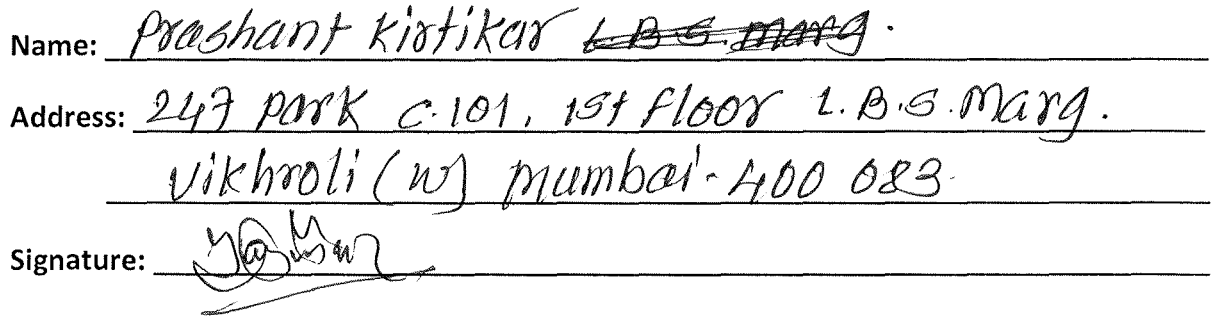 Name: Prashant Kirtikar L.B.S. Marg.
Address: 247 Park C-101, 1st Floor L.B.S. Marg.
Vikhroli (W) Mumbai - 400 083.
Signature: